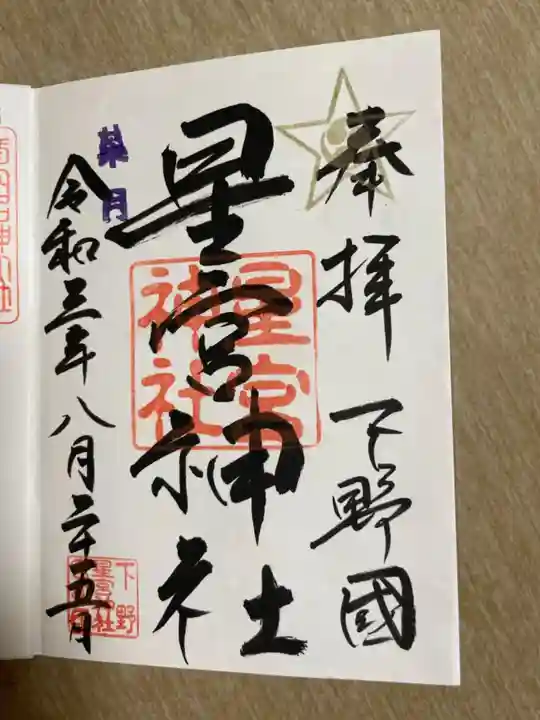 奉拝 下野國
星宮神社
星宮神社
葉月
令和三年八月二十五日
下野
星宮神社